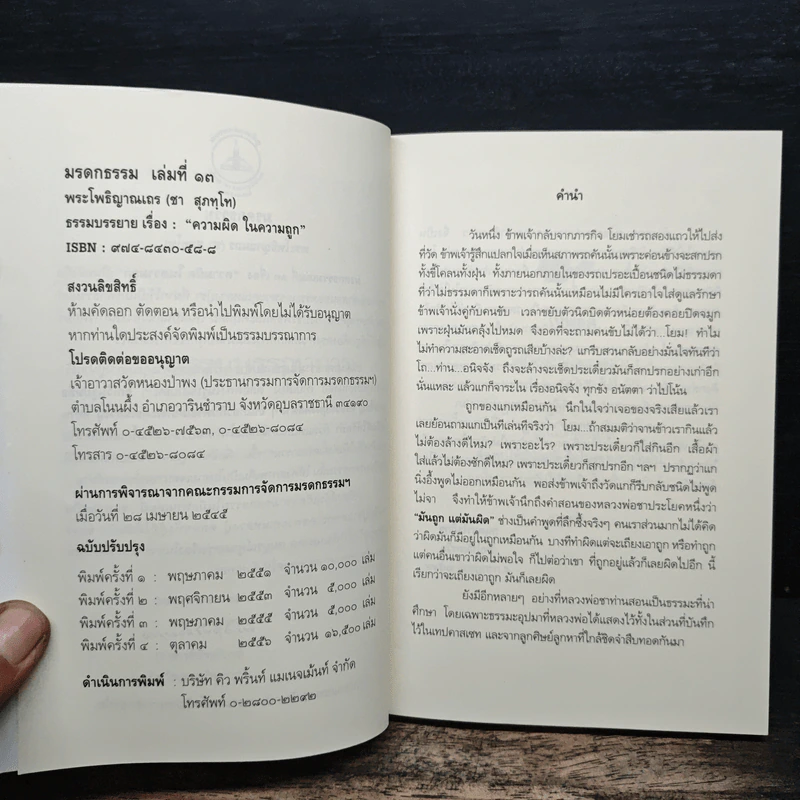 มรดกธรรม เล่มที่ ๑๓
พระโพธิญาณเถร (ชา สุภทฺโท)
ธรรมบรรยาย เรื่อง : “ความผิด ในความถูก”
ISBN : ๙๗๔-๘๔๓๐-๕๘-๘
สงวนลิขสิทธิ์
ห้ามคัดลอก ตัดตอน หรือนำไปพิมพ์โดยไม่ได้รับอนุญาต
หากท่านใดประสงค์จัดพิมพ์เป็นธรรมบรรณาการ
โปรดติดต่อขออนุญาต
เจ้าอาวาสวัดหนองป่าพง (ประธานกรรมการจัดการมรดกธรรมฯ)
ตำบลโนนผึ้ง อำเภอวารินชำราบ จังหวัดอุบลราชธานี ๓๔๑๙๐
โทรศัพท์ ๐-๔๕๒๖-๗๕๖๓, ๐-๔๕๒๖-๘๐๘๔
โทรสาร ๐-๔๕๒๖-๘๐๘๔
ผ่านการพิจารณาจากคณะกรรมการจัดการมรดกธรรมฯ
เมื่อวันที่ ๒๘ เมษายน ๒๕๔๕
ฉบับปรับปรุง
พิมพ์ครั้งที่ ๑ : พฤษภาคม ๒๕๕๑ จำนวน ๑๐,๐๐๐ เล่ม
พิมพ์ครั้งที่ ๒ : พฤศจิกายน ๒๕๕๓ จำนวน ๕,๐๐๐ เล่ม
พิมพ์ครั้งที่ ๓ : พฤษภาคม ๒๕๕๕ จำนวน ๕,๐๐๐ เล่ม
พิมพ์ครั้งที่ ๔ : ตุลาคม ๒๕๕๖ จำนวน ๑๖,๕๐๐ เล่ม
ดำเนินการพิมพ์ : บริษัท คิว พริ้นท์ แมเนจเม้นท์ จำกัด
โทรศัพท์ ๐-๒๘๐๐-๒๒๙๒
คำนำ
วันหนึ่ง ข้าพเจ้ากลับจากภารกิจ โยมเช่ารถสองแถวให้ไปส่ง
ที่วัด ข้าพเจ้ารู้สึกแปลกใจเมื่อเห็นสภาพรถคันนั้นเพราะค่อนข้างจะสกปรก
ทั้งขี้โคลนทั้งฝุ่น ทั้งภายนอกภายในของรถเปรอะเปื้อนชนิดไม่ธรรมดา
ที่ว่าไม่ธรรมดาก็เพราะว่ารถคันนั้นเหมือนไม่มีใครเอาใจใส่ดูแลรักษา
ข้าพเจ้านั่งคู่กับคนขับ เวลาขยับตัวนิดบิดตัวหน่อยต้องคอยปิดจมูก
เพราะฝุ่นมันคลุ้งไปหมด จึงอดที่จะถามคนขับไม่ได้ว่า...โยม! ทำไม
ไม่ทำความสะอาดเช็ดถูรถเสียบ้างล่ะ? แกรีบสวนกลับอย่างมั่นใจทันทีว่า
โถ...ท่าน...อนิจจัง ถึงจะล้างจะเช็ดประเดี๋ยวมันก็สกปรกอย่างเก่าอีก
นั่นแหละ แล้วแกก็จาระไน เรื่องอนิจจัง ทุกขัง อนัตตา ว่าไปโน้น
ถูกของแกเหมือนกัน นึกในใจว่าเจอของจริงเสียแล้วเรา
เลยย้อนถามแกเป็นทีเล่นทีจริงว่า โยม...ถ้าสมมติว่าจานข้าวเรากินแล้ว
ไม่ต้องล้างดีไหม? เพราะอะไร? เพราะประเดี๋ยวก็ใส่กินอีก เสื้อผ้า
ใส่แล้วไม่ต้องซักดีไหม? เพราะประเดี๋ยวก็สกปรกอีก ฯลฯ ปรากฏว่าแก
นิ่งอึ้งพูดไม่ออกเหมือนกัน พอส่งข้าพเจ้าถึงวัดแกก็รีบกลับชนิดไม่พูด
ไม่จา จึงทำให้ข้าพเจ้านึกถึงคำสอนของหลวงพ่อชาประโยคหนึ่งว่า
“มันถูก แต่มันผิด” ช่างเป็นคำพูดที่ลึกซึ้งจริงๆ คนเราส่วนมากไม่ได้คิด
ว่าผิดมันก็มีอยู่ในถูกเหมือนกัน บางทีทำผิดแต่จะเถียงเอาถูก หรือทำถูก
แต่คนอื่นเขาว่าผิดไม่พอใจ ก็ไปต่อว่าเขา ที่ถูกอยู่แล้วก็เลยผิดไปอีก นี้
เรียกว่าจะเถียงเอาถูก มันก็เลยผิด
ยังมีอีกหลายๆ อย่างที่หลวงพ่อชาท่านสอนเป็นธรรมะที่น่า
ศึกษา โดยเฉพาะธรรมะอุปมาที่หลวงพ่อได้แสดงไว้ทั้งในส่วนที่บันทึก
ไว้ในเทปคาสเซท และจากลูกศิษย์ลูกหาที่ใกล้ชิดจำสืบทอดกันมา